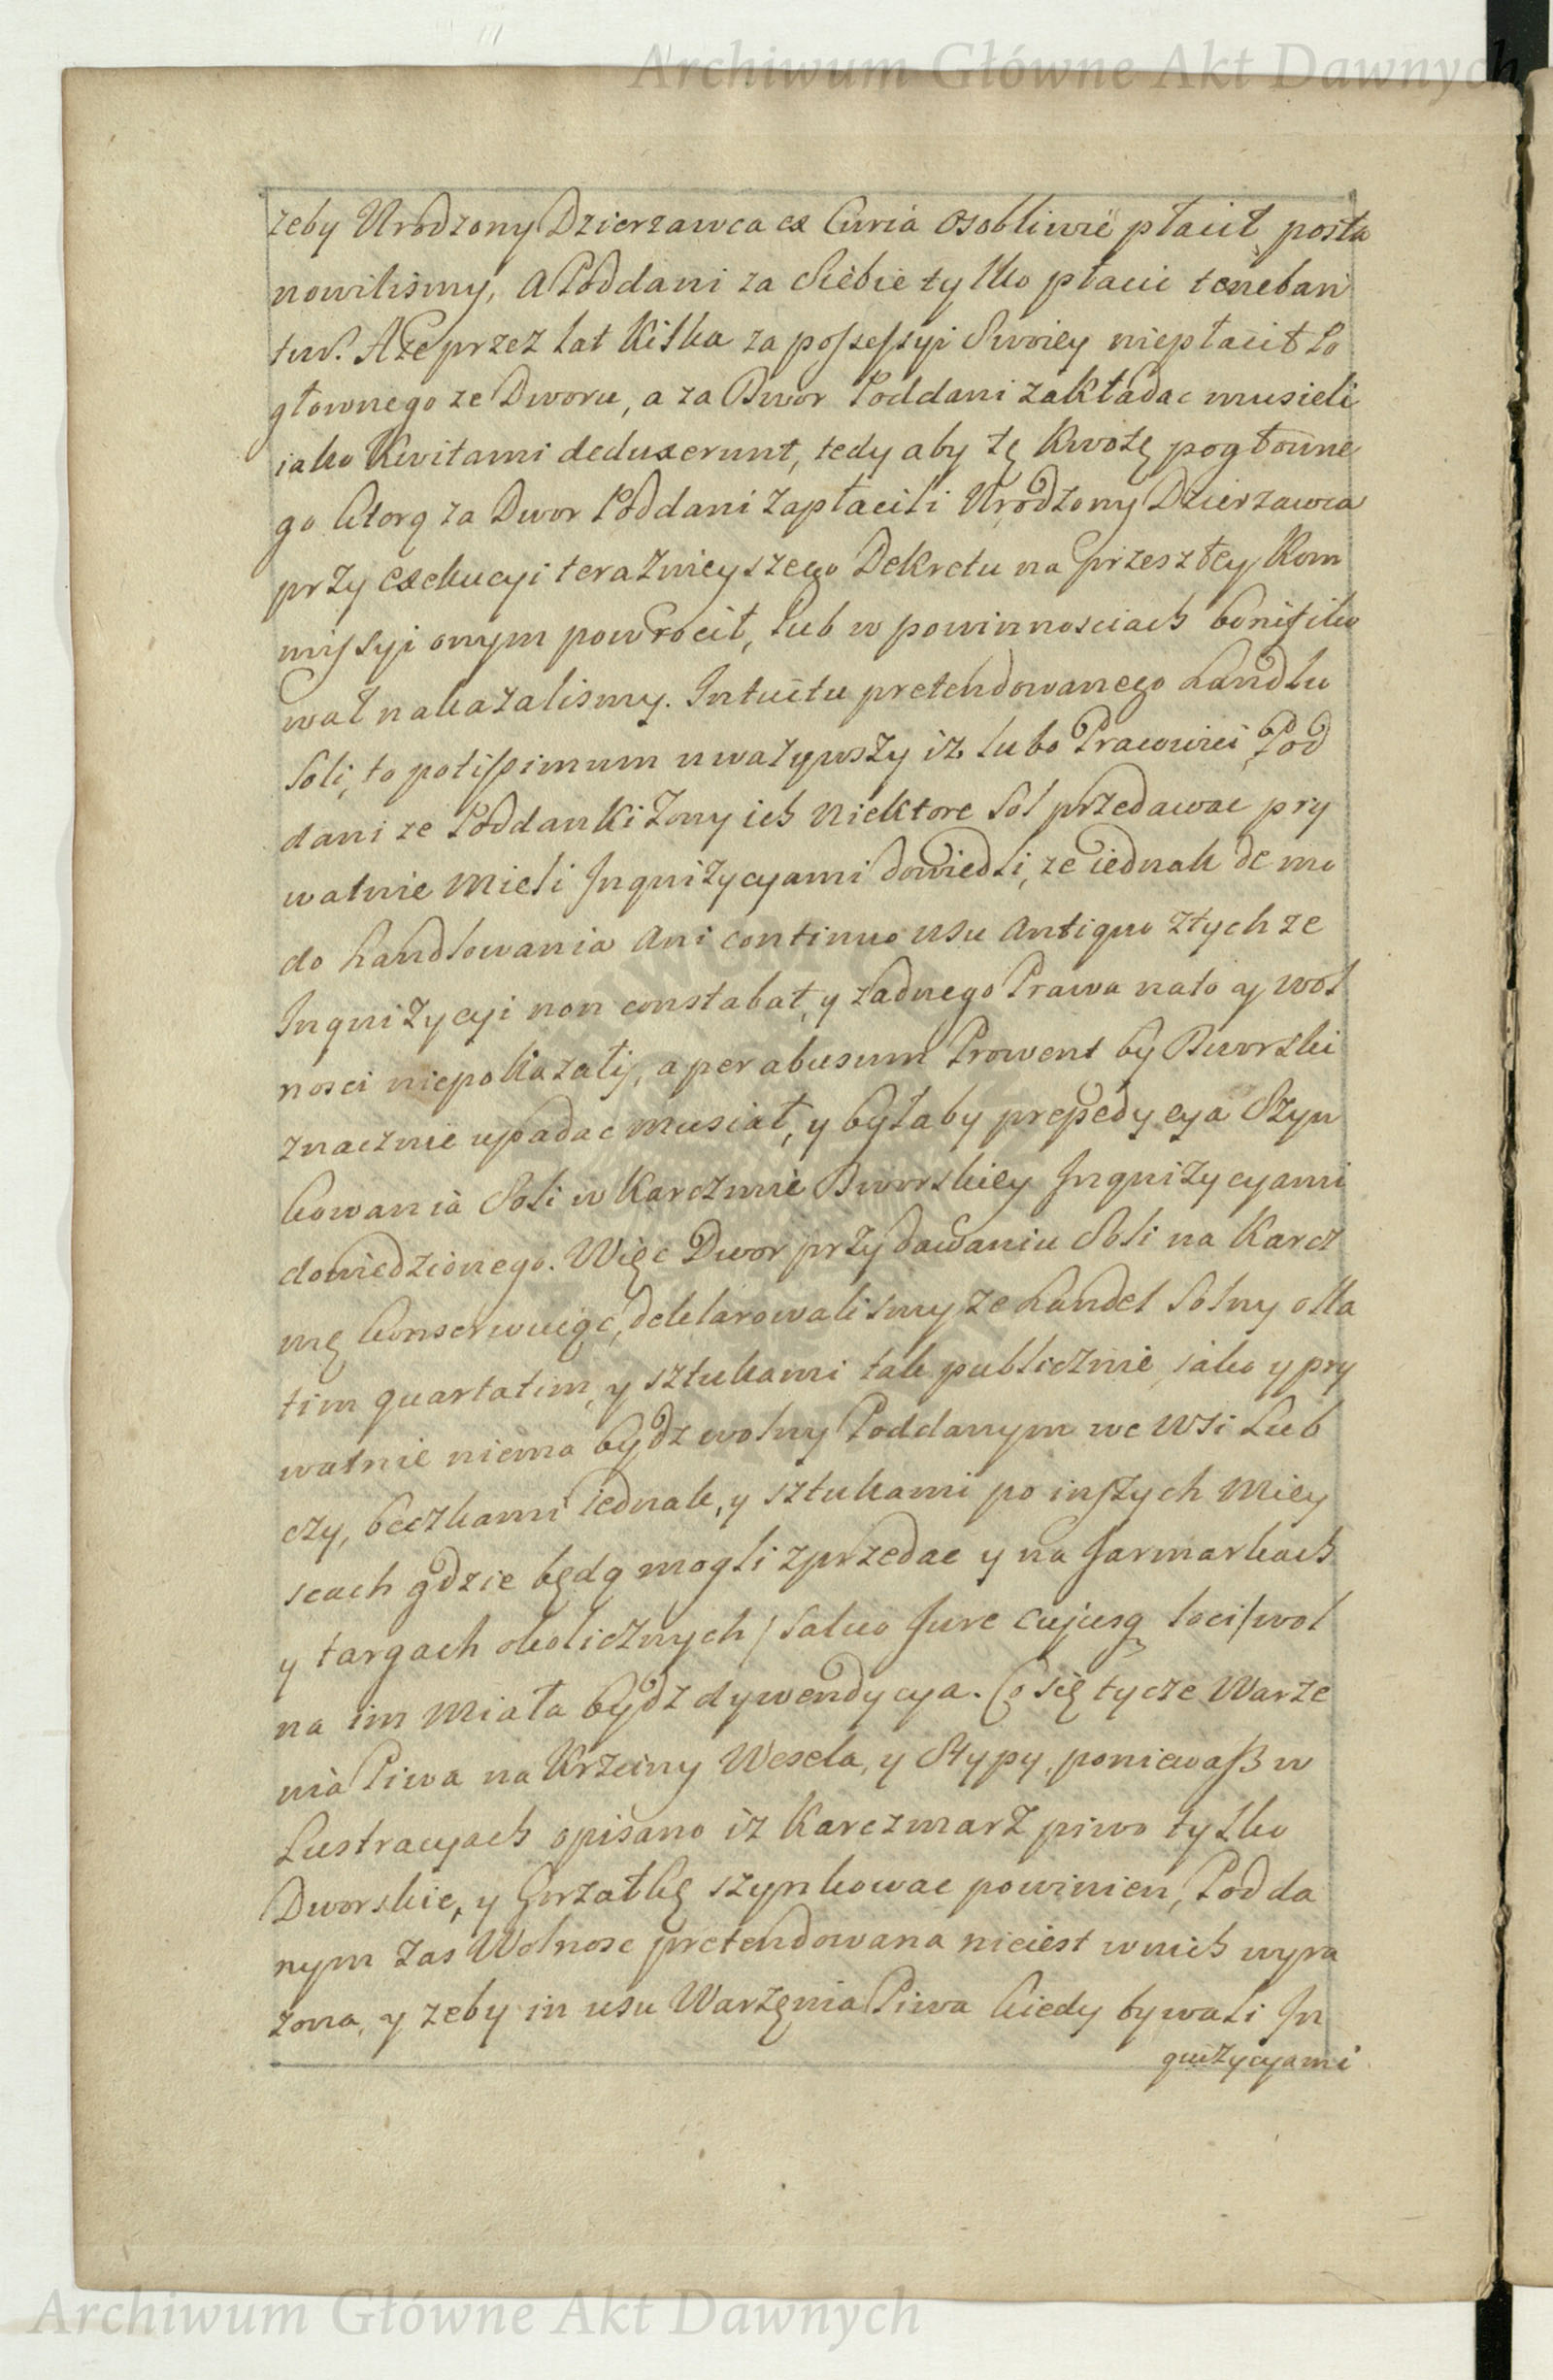 Archiwum Główne Akt Dawnych
zeby Urodzony Dzierzawca ex Curia osobliwie płacił posta
nowilismy, A Poddani za Siebie tylko płacic teneban
tur. A ze przez lat kilka za possessyi Swoiey niepłacił Po
głownego ze Dworu, a za Dwor Poddani zakładac musieli
iako Kwitami deduxerunt, tedy aby tę kwotę pogłowne
go ktorą za Dwor Poddani zapłacili Urodzony Dzierzawca
przy exekucyi teraznieyszego Dekretu na przeszłey Kom
missyi onym powrocił, lub w powinnosciach bonifiko
wał nakazalismy. Intuitu pretendowanego handlu
Soli, to potissimum uwazywszy iz lubo Prawuiei Pod
dani ze Poddanki Zony ich niektore Sol przedawac pry
watnie mieli Inquizycyami dowiedli, ze iednak de mo
do handlowania ani continuo usu antiquo z tychze
Inquizycyi non constabat, y zadnego Prawa nato y wol
nosci niepokazali, a per abusum Prowent by Dworski
znacznie upadac musiał, y byłaby prepedycya Szyn
kowania Soli w Karczmie Dworskiey Inquizycyami
dowiedzionego. Więc Dwor przy dawaniu Soli na Karcz
mę konserwuiąc, deklarowalismy ze handel Solny olla
tim quartatim, y sztukami tak publicznie iako y pry
watnie niema bydz wolny Poddanym we Wsi Lub
czy, beczkami iednak, y sztukami po inszych miey
scach gdzie będą mogli zprzedac y na Jarmarkach
y targach okolicznych / salvo Jure cujusq loci / wol
na im miała bydz dywendycya. Co się tycze Warze
nia Piwa na Krzciny Wesela, y Stypy, poniewasz w
Lustracyach opisano iz Karczmarz piwo tylko
Dworskie, y Gorzałkę szynkowac powinien, Podda
nym zas Wolnosc pretendowana nieiest w nich wyra
zona, y zeby in usu Warzęnia Piwa kiedy bywali In
quizycyami
Archiwum Główne Akt Dawnych